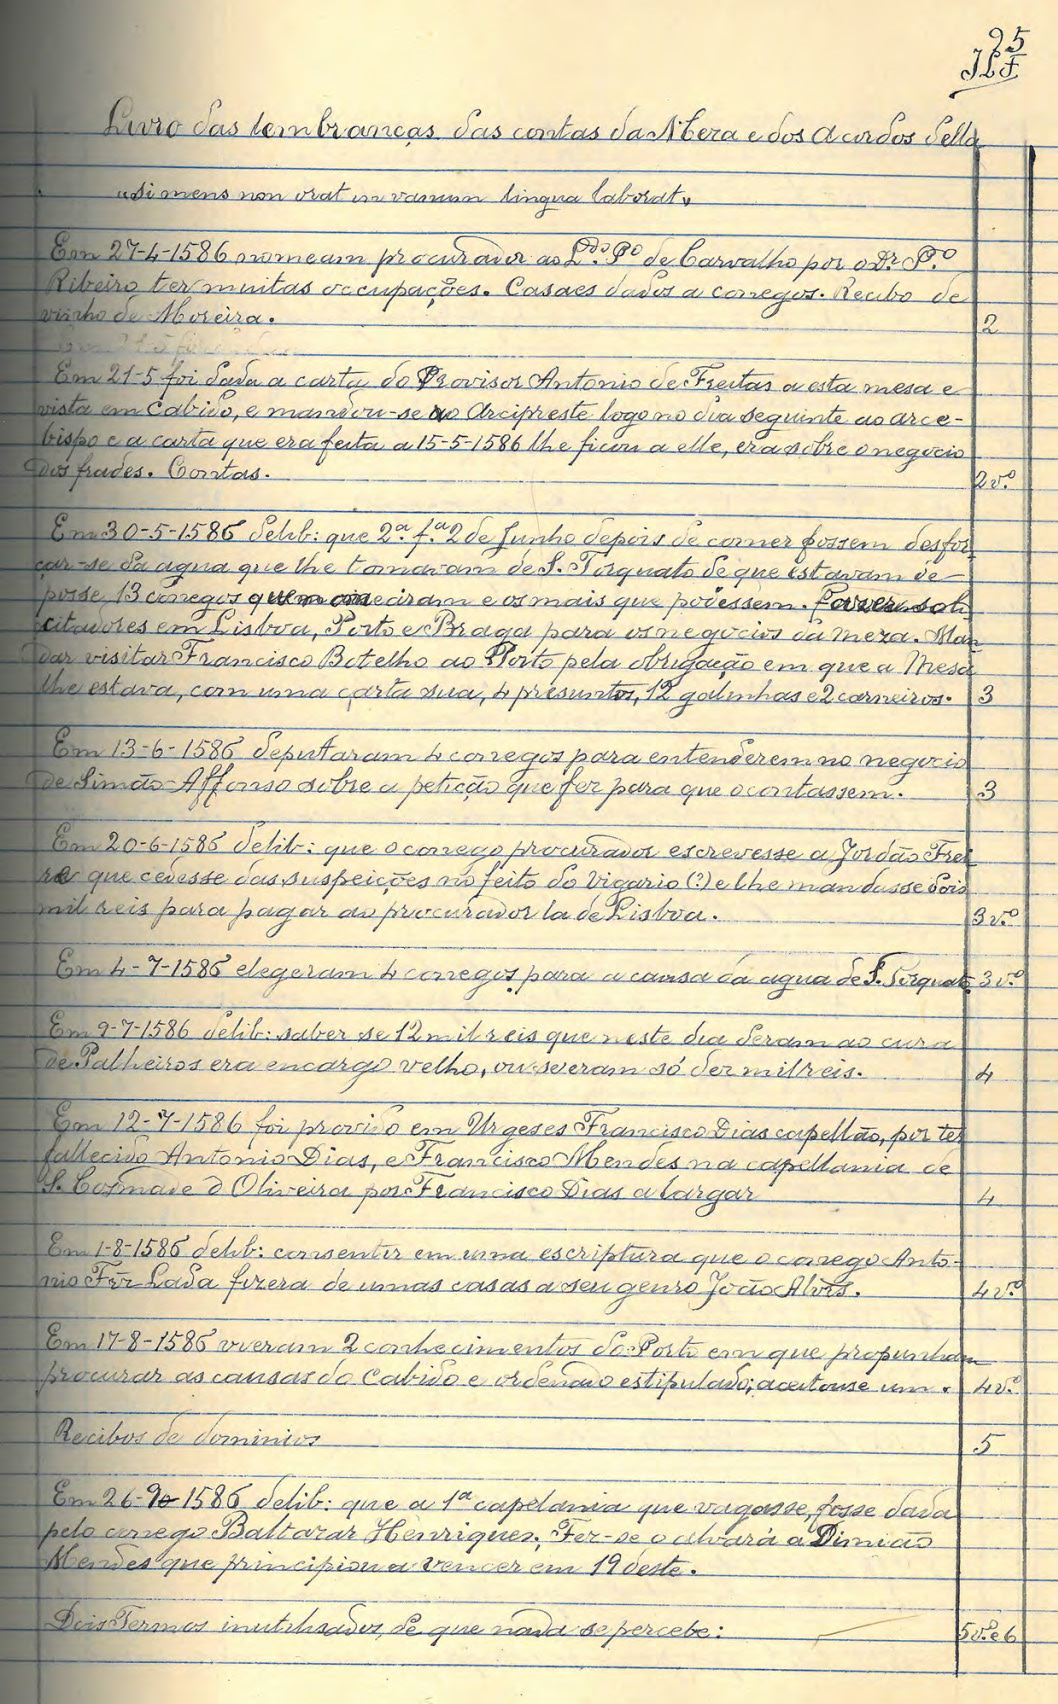 95
JLF
Livro das lembranças das contas da Meza e dos Acordos della
"Si mens non orat in vanum lingua laborat"
Em 27-4-1586 nomeam procurador ao Ldo. Po. de Carvalho por o Dr. P.o
Ribeiro ter muitas occupações. Casaes dados a conegos. Recibo de
vinho de Moreira. 2
Em 21-5 foi dada a carta do Provisor Antonio de Freitas a esta mesa e
vista em Cabido, e mandou-se ao Arcipreste logo no dia seguinte ao arce-
bispo e a carta que era feita a 15-5-1586 lhe ficou a elle, era sobre o negocio
dos frades. Contas. 2 v.o
Em 30-5-1586 delib: que 2.a f.a 2 de Junho depois de comer fossem desfor-
çar-se da agua que lhe tomavam de S. Torquato de que estavam de
posse, 13 conegos que nomearam e os mais que podessem. Fazer soli
citadores em Lisboa, Porto e Braga para os negocios da meza. Man
dar visitar Francisco Botelho ao Porto pela obrigação em que a Mesa
lhe estava, com uma carta sua, 4 presuntos, 12 galinhas e 2 carneiros. 3
Em 13-6-1586 deputaram 4 conegos para entenderem no negocio
de Simão Affonso sobre a petição que fez para que o contassem. 3
Em 20-6-1586 delib: que o conego procurador escrevesse a Jordão Frei
re que cedesse das suspeições no feito do Vigario (?) e lhe mandasse dois
mil reis para pagar ao procurador la de Lisboa. 3 v.o
Em 4-7-1586 elegeram 4 conegos para a causa da agua de S. Torquato 3 v.o
Em 9-7-1586 delib: saber se 12 mil reis que neste dia deram ao cura
de Palheiros era encargo velho, ou se eram só dez mil reis. 4
Em 12-7-1586 foi provido em Urgeses Francisco Dias capellão, por ter
fallecido Antonio Dias, e Francisco Mendes na capellania de
S. Cosmade d'Oliveira por Francisco Dias a largar 4
Em 1-8-1586 delib: consentir em uma escriptura que o conego Anto-
nio Frz Lada fizera de umas casas a seu genro João Alvrs. 4 v.o
Em 17-8-1586 vieram 2 conhecimentos do Porto em que propunham
procurar as causas do Cabido e ordenado estipulado; aceitouse um. 4 v.o
Recibos de dominios 5
Em 26-9-1586 delib: que a 1a capelania que vagasse, fosse dada
pelo conego Baltazar Henriques. Fez-se o alvará a Dinião
Mendes que principiou a vencer em 19 deste.
Dois Termos inutilisados, de que nada se percebe: 5 v.o e 6